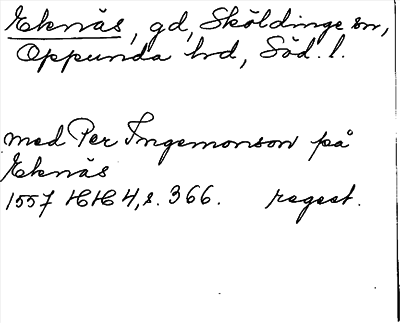 Eknäs, gd, Sköldinge sn,
Oppunda hd, Söd. l.
med Per Ingemonson på
Eknäs
1557 HH 4, s. 366. regest.